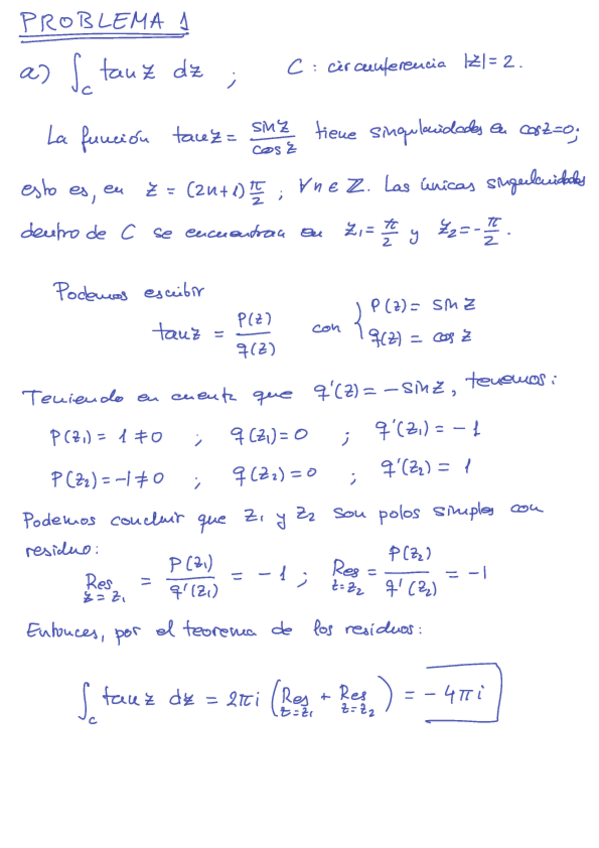 PROBLEMA 1
a) ∫_C tan z dz ; C : circunferencia |z|= 2.
La función tan z = sin z / cos z tiene singularidades en cos z=0;
esto es, en z = (2n+1) π/2 ; ∀n∈Z. Las únicas singularidades
dentro de C se encuentran en z₁= π/2 y z₂= -π/2.
Podemos escribir
tan z = P(z)/q(z) con { P(z)= sin z
q(z) = cos z
Teniendo en cuenta que q'(z)= -sin z, tenemos:
P(z₁)= 1 ≠0 ; q(z₁)=0 ; q'(z₁)= -1
P(z₂)=-1≠0 ; q(z₂)=0 ; q'(z₂)= 1
Podemos concluir que z₁ y z₂ son polos simples con
residuo:
Res_{z=z₁} = P(z₁)/q'(z₁) = -1 ; Res_{z=z₂} = P(z₂)/q'(z₂) = -1
Entonces, por el teorema de los residuos:
∫_C tan z dz = 2πi (Res_{z=z₁} + Res_{z=z₂}) = -4πi